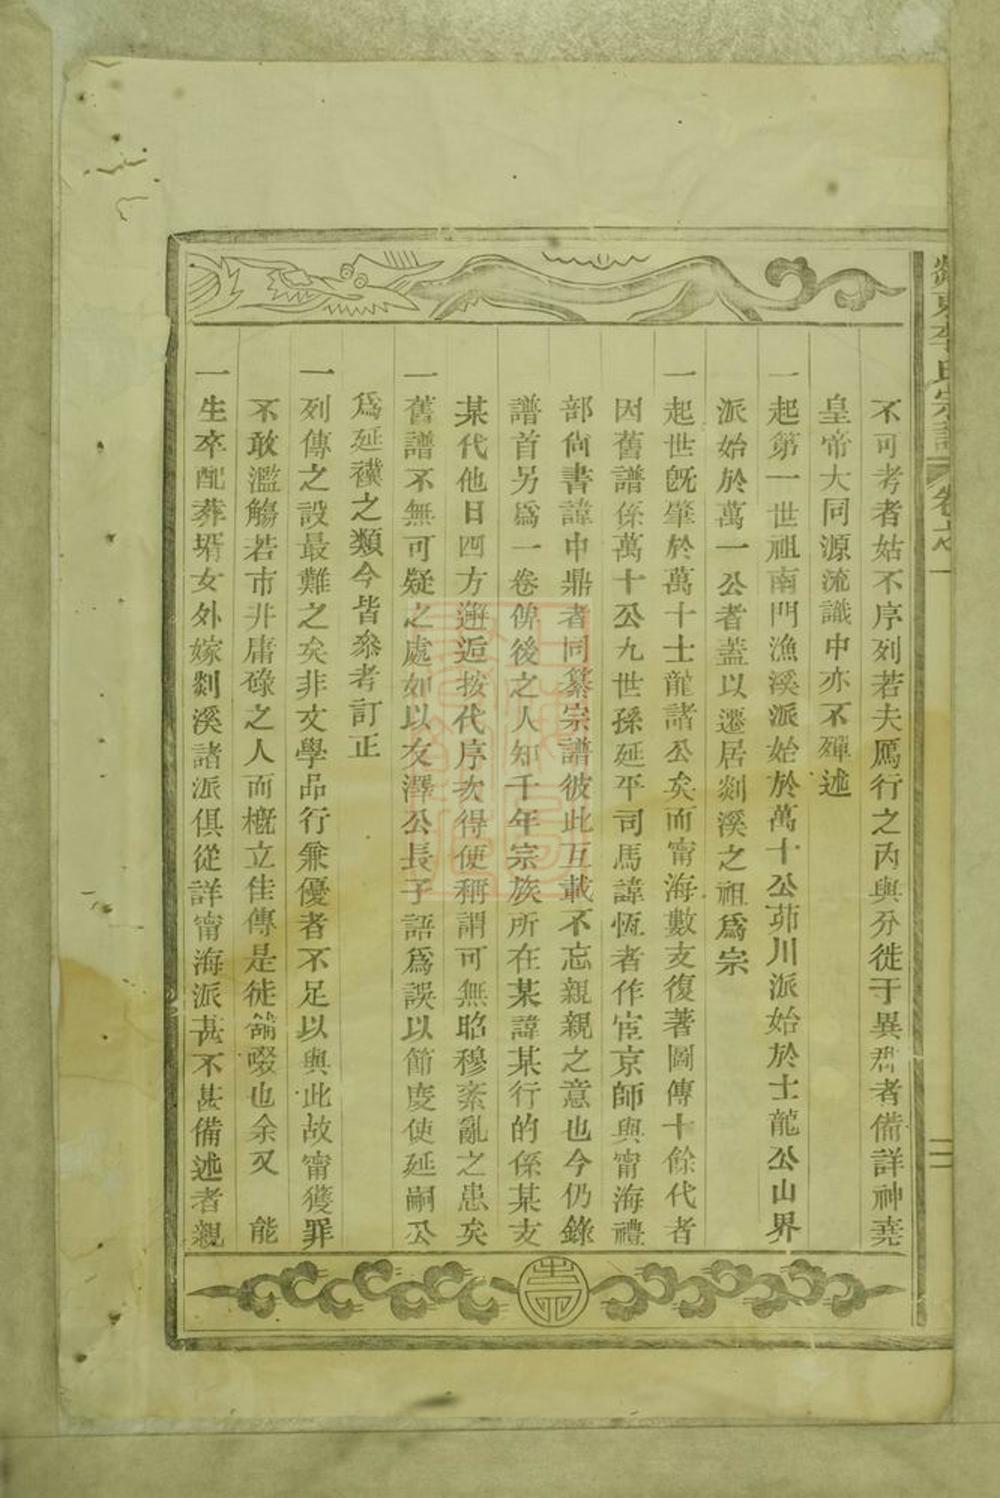 東李氏宗譜 卷之一 二
不可考者姑不序列若夫鴈行之丙與分徙于異郡者備詳神堯
皇帝大同源流識中亦不殫述
一起第一世祖南門漁溪派始於萬十公茆川派始於士龍公山界
派始於萬一公者蓋以遷居剡溪之祖爲宗
一起世既肇於萬十士龍諸公矣而甯海數支復著圖傳十餘代者
因舊譜係萬十公九世孫延平司馬諱恆者作宦京師與甯海禮
部尙書諱中鼎者同纂宗譜彼此互載不忘親親之意也今仍錄
譜首另爲一卷俾後之人知千年宗族所在某諱某行的係某支
某代他日四方邂逅按代序次得便稱謂可無昭穆紊亂之患矣
一舊譜不無可疑之處如以友澤公長子語爲誤以節度使延嗣公
爲延襆之類今皆叅考訂正
一列傳之設最難之矣非文學品行兼優者不足以與此故甯獲罪
不敢濫觴若市井庸碌之人而概立佳傳是徒餔啜也余又 能
一生卒配葬壻女外嫁剡溪諸派俱從詳甯海派甚不甚備述者親